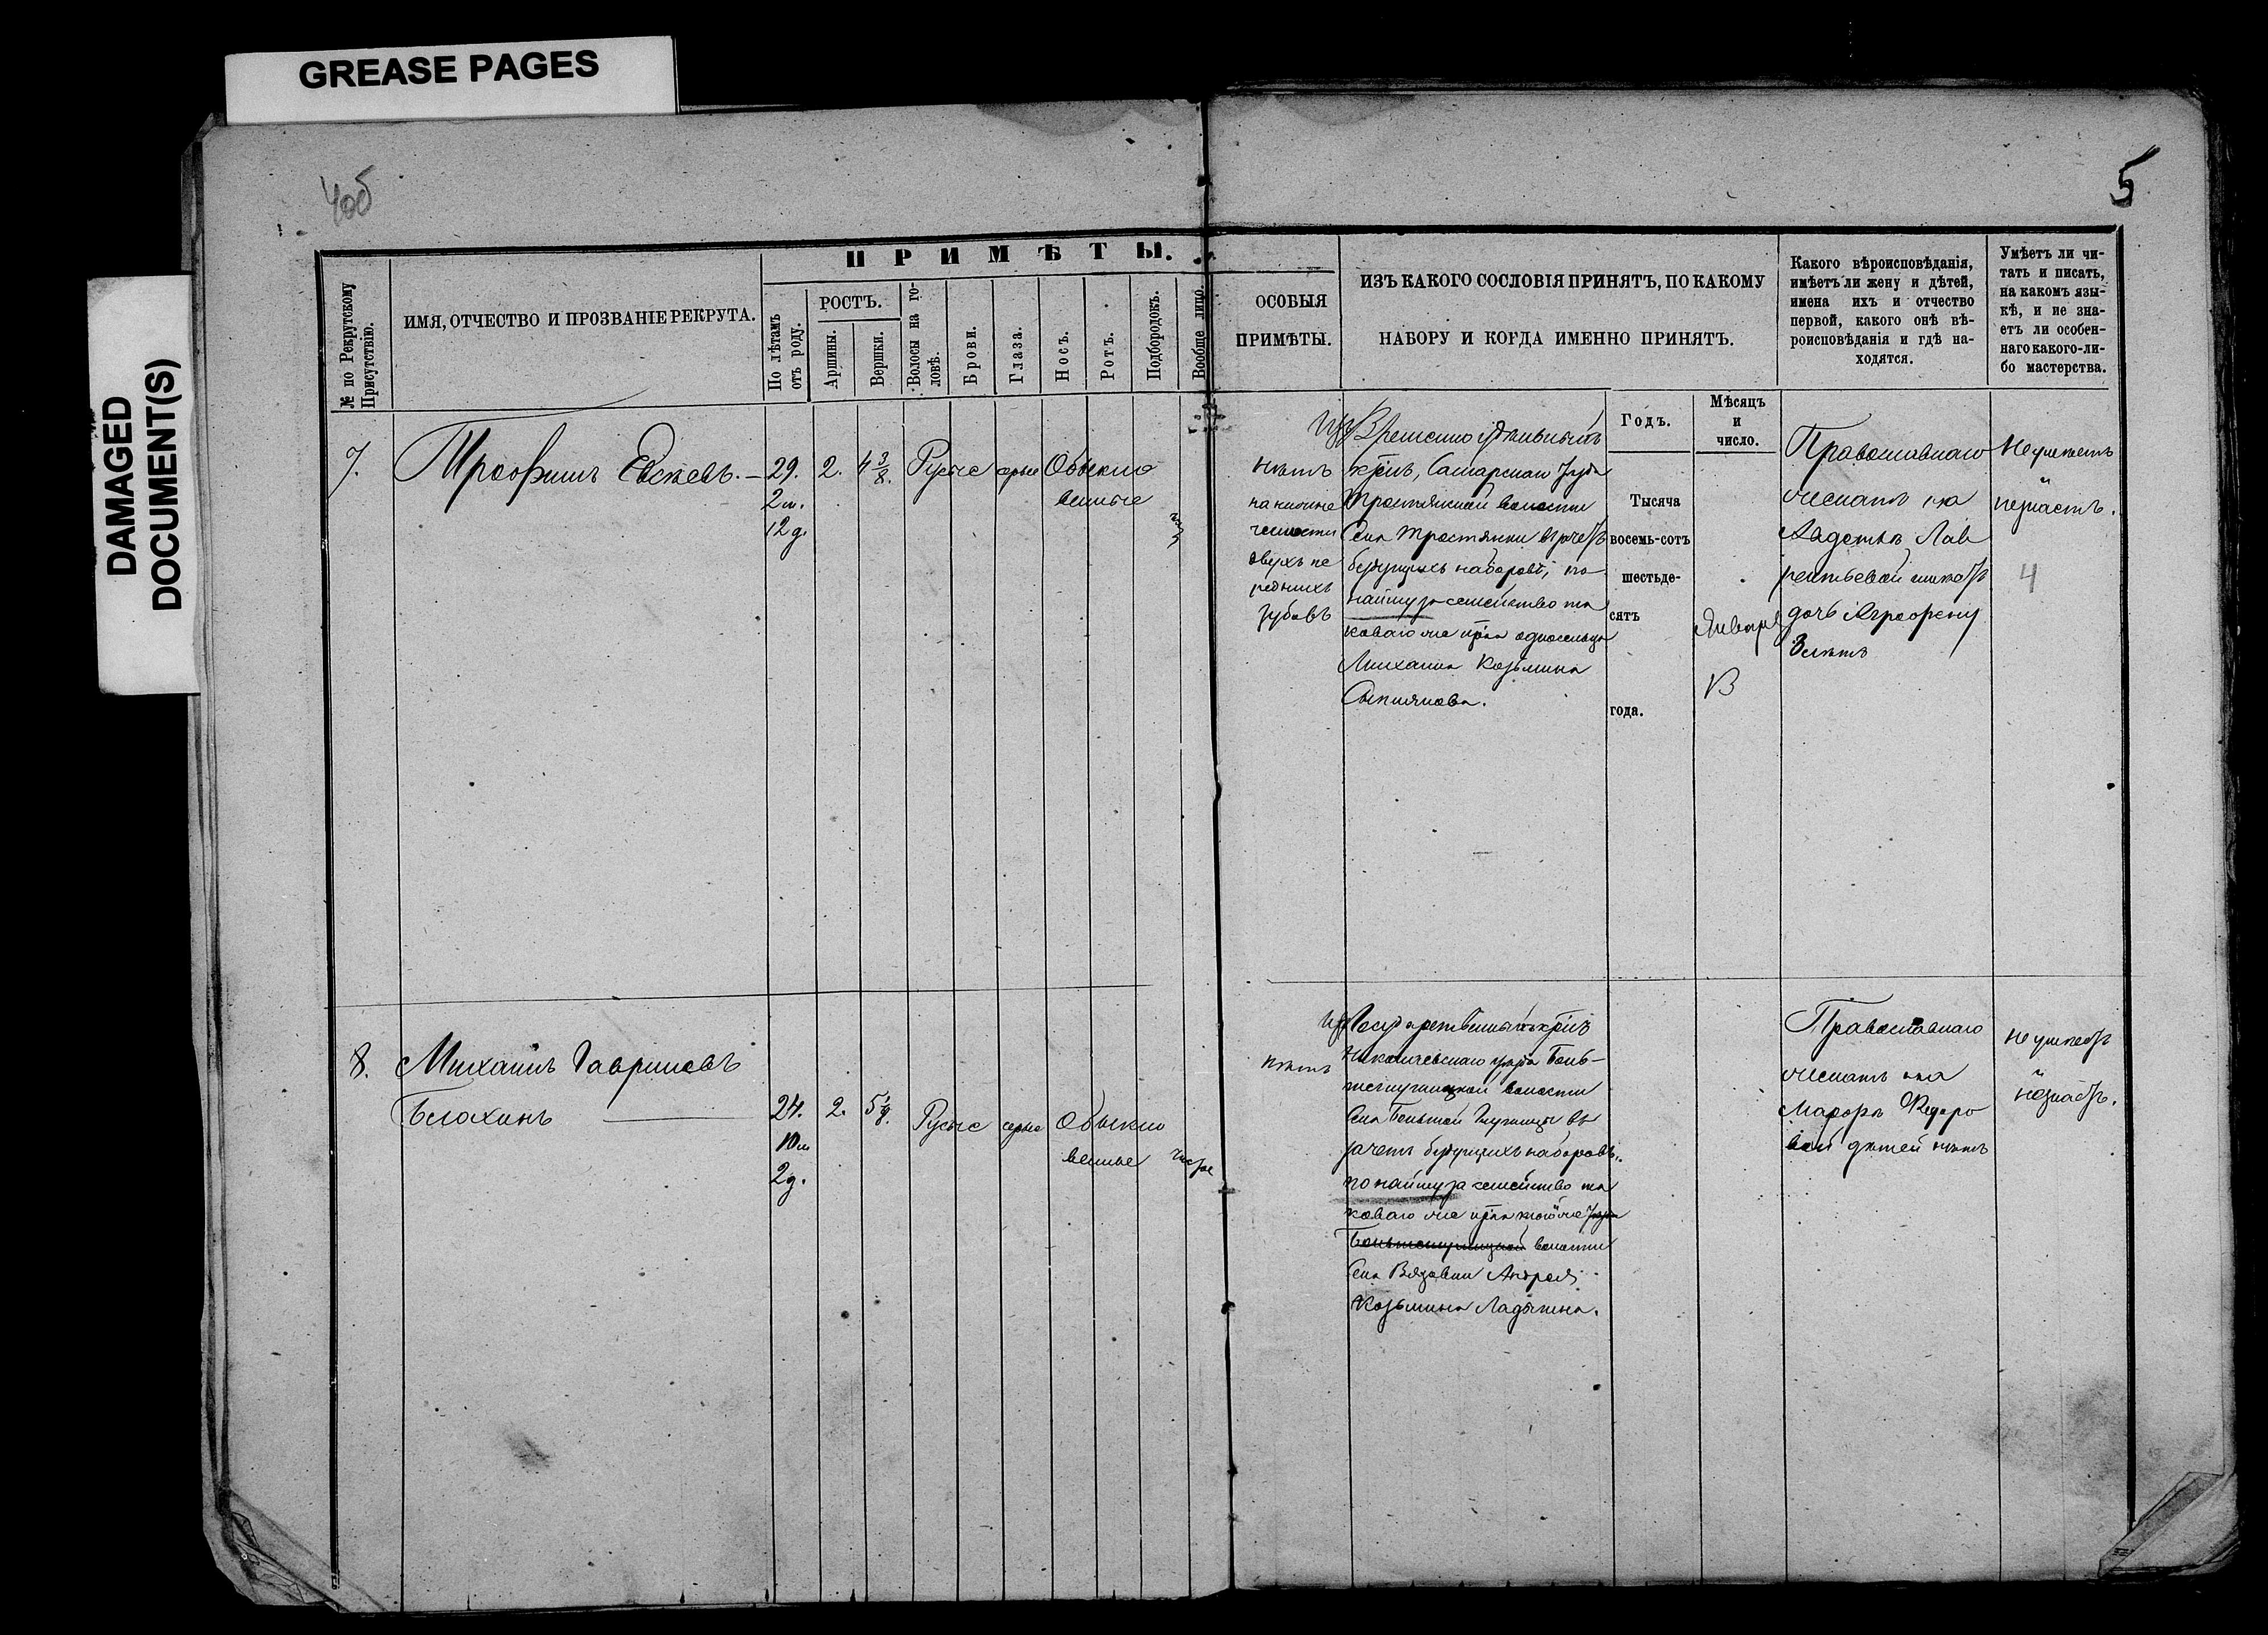 GREASE PAGES
DAMAGED
DOCUMENT(S)
4об
5
ПРИМѢТЫ.
№ по Рекрутскому
Присутствію.
ИМЯ, ОТЧЕСТВО И ПРОЗВАНІЕ РЕКРУТА.
По лѣтамъ
отъ роду.
РОСТЪ.
Аршины.
Вершки.
Волосы на го-
ловѣ.
Брови.
Глаза.
Носъ.
Ротъ.
Подбородокъ.
Вообще лицо.
ОСОБЫЯ
ПРИМѢТЫ.
ИЗЪ КАКОГО СОСЛОВІЯ ПРИНЯТЪ, ПО КАКОМУ
НАБОРУ И КОГДА ИМЕННО ПРИНЯТЪ.
Какого вѣроисповѣданія,
имѣетъ ли жену и дѣтей,
имена ихъ и отчество
первой, какого онѣ вѣ-
роисповѣданія и гдѣ на-
ходятся.
Умѣетъ ли чи-
тать и писать,
на какомъ язы-
кѣ, и не зна-
етъ ли особен-
наго какого-ли-
бо мастерства.
Годъ.
Мѣсяцъ
и
число.
7.
Трофимъ Евсѣевъ.
29.
2 м.
12 д.
2.
4 3/8.
Русые
сѣрые
Обыкно
венные
нѣтъ
на нижне
челюсти
двухъ пе
реднихъ
зубовъ
Изъ Временно обязанныхъ
крнъ, Самарскаго уѣзда
Тростянской волости
Села Тростянки взачетъ
будущихъ наборовъ, по
найму за семейство та
коваго же крна односельца
Михаила Козьмина
Тысяча
восемь-сотъ
шестьде-
сятъ
года.
Января
13
Православнаго
женатъ на
Авдотьѣ Лав
рентьевой имѣетъ
дочь Агрофену
3 лѣтъ
Неумѣетъ
незнаетъ.
4
8.
Михаилъ Гавриловъ
Блохинъ
24.
10 м
2 д.
2.
5 1/8.
Русые
сѣрые
Обыкно
венные
чистое
нѣтъ
Изъ Государственныхъ крнъ
Николаевскаго уѣзда Боль-
шеглушицкой волости
Села Большой Глушицы въ
зачетъ будущихъ наборовъ,
по найму за семейство та
коваго же крна того же уѣзда
Большеглушицкой волости
Села Вязовки Андрея
Козьмина Ладыгина.
Православнаго
женатъ на
Марѳѣ Ѳедоро
вой дѣтей нѣтъ
неумѣетъ
незнаетъ.